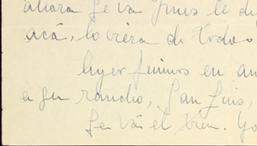 ahora se va Luis le di
acá, lo viera de todos
Ayer fuimos en au
a su rancho, San Luis,
Se vá el tren. Yo